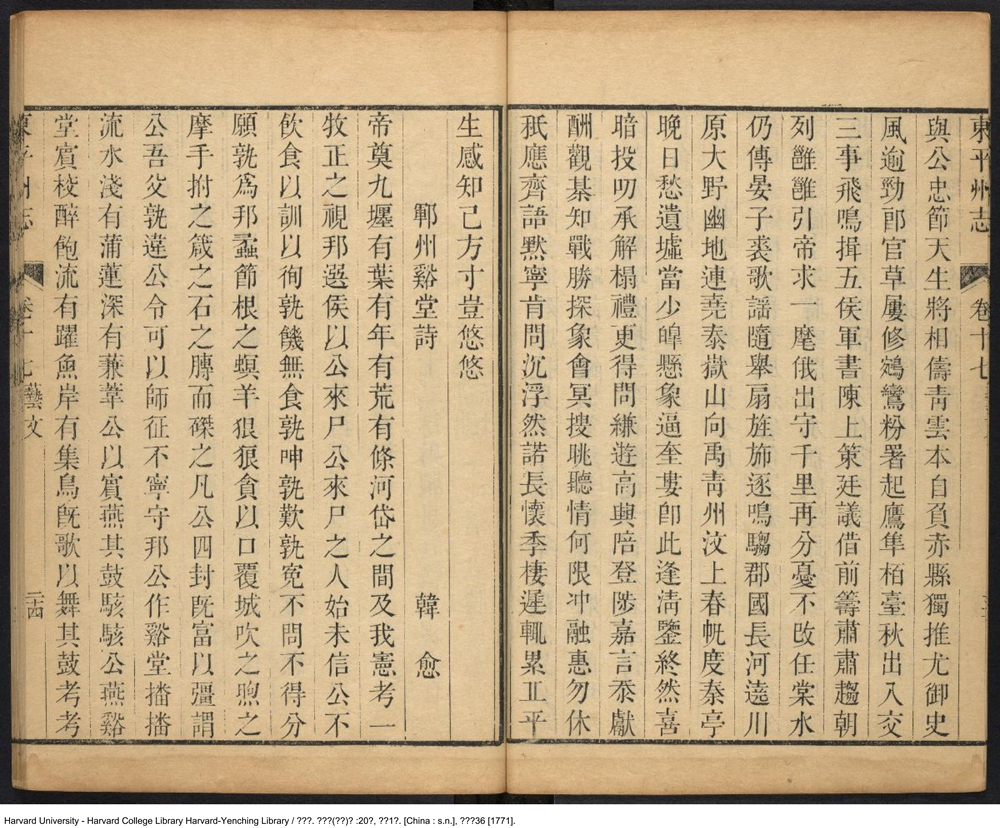 東平州志 卷十七
與公忠節天生將相儔靑雲本自負赤縣獨推尤御史
風逾勁郎官草屢修鵷鸞粉署起鷹隼栢臺秋出入交
三事飛鳴揖五侯軍書陳上策廷議借前籌肅肅趨朝
列雝雝引帝求一麾俄出守千里再分憂不改任棠水
仍傳晏子裘歌謡隨舉扇旌斾逐鳴騶郡國長河遶川
原大野幽地連堯泰嶽山向禹靑州汶上春帆度秦亭
晚日愁遺墟當少皥懸象逼奎婁卽此逢淸鑒終然喜
暗投叨承解榻禮更得問縑遊高興陪登陟嘉言忝獻
酬觀棊知戰勝探象會冥搜眺聽情何限冲融惠勿休
秖應齊語黙寧肯問沉浮然諾長懷季棲遲輒累丘平
生感知己方寸豈悠悠
鄆州谿堂詩 韓愈
帝奠九壥有葉有年有荒有條河岱之間及我憲考一
牧正之視邦選侯以公來尸公來尸之人始未信公不
飮食以訓以徇孰饑無食孰呻孰歎孰寃不問不得分
願孰爲邦蟊節根之螟羊狠狼貪以口覆城吹之喣之
摩手拊之箴之石之膊而磔之凡公四封旣富以彊謂
公吾父孰違公令可以師征不寧守邦公作谿堂播播
流水淺有蒲蓮深有蒹葦公以賓燕其鼓駭駭公燕谿
堂賓校醉飽流有躍魚岸有集鳥旣歌以舞其鼓考考
東平州志 卷十七藝文 三四
Harvard University - Harvard College Library Harvard-Yenching Library / ???. ???(??)? :20?, ??1?. [China : s.n.], ???36 [1771].